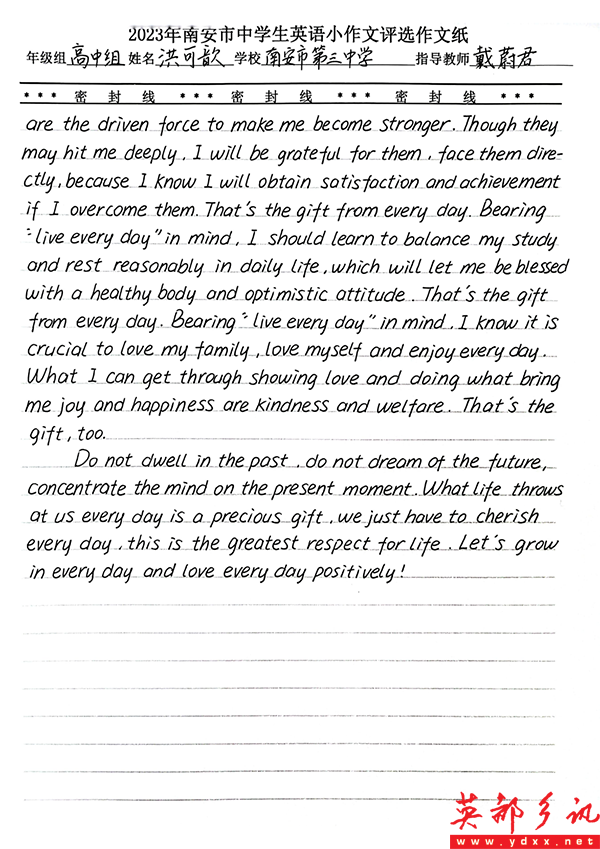 2023年南安市中学生英语小作文评选作文纸
年级组 高中组 姓名 洪可歆 学校 南安市第三中学 指导教师 戴蔚君
*** 密 封 线 *** 密 封 线 *** 密 封 线 ***
are the driven force to make me become stronger. Though they
may hit me deeply, I will be grateful for them, face them dire-
ctly, because I know I will obtain satisfaction and achievement
if I overcome them. That's the gift from every day. Bearing
"live every day" in mind, I should learn to balance my study
and rest reasonably in daily life, which will let me be blessed
with a healthy body and optimistic attitude. That's the gift
from every day. Bearing "live every day" in mind, I know it is
crucial to love my family, love myself and enjoy every day.
What I can get through showing love and doing what bring
me joy and happiness are kindness and welfare. That's the
gift, too.
Do not dwell in the past, do not dream of the future,
concentrate the mind on the present moment. What life throws
at us every day is a precious gift, we just have to cherish
every day, this is the greatest respect for life. Let's grow
in every day and love every day positively!
英都乡讯
www.ydxx.net